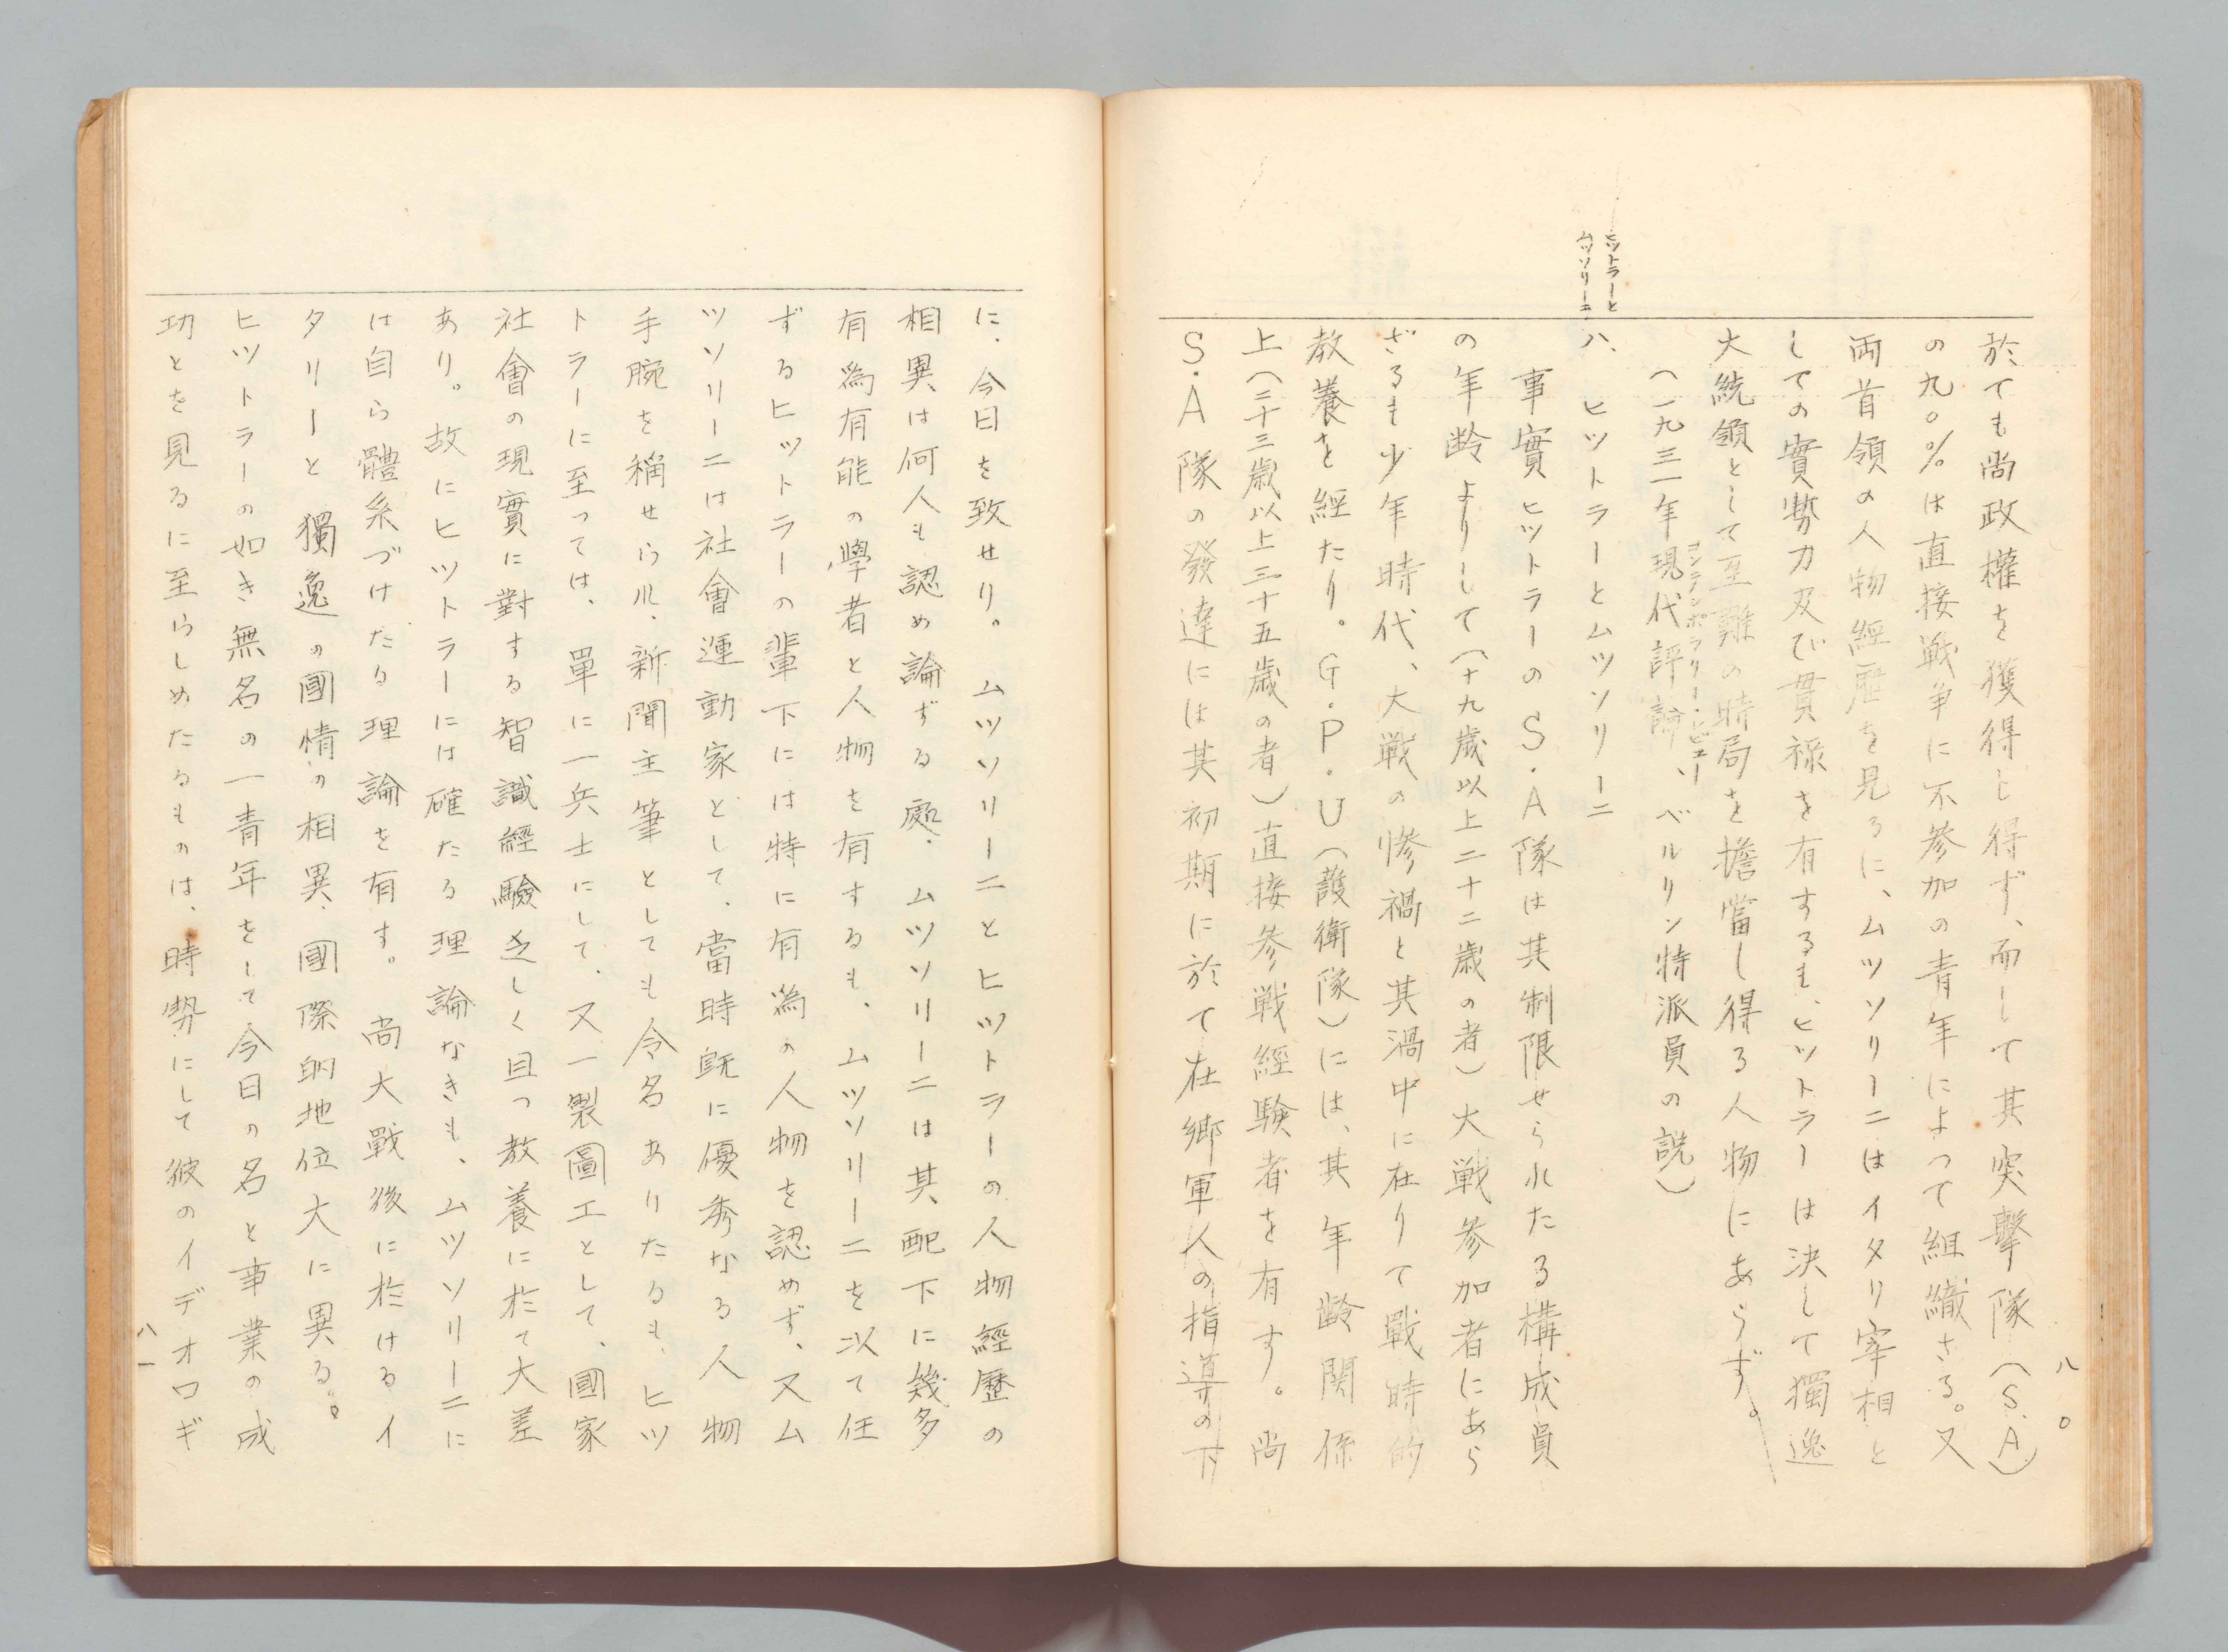 八〇
於ても尚政權を獲得し得ず、而して其突擊隊(S.A)
の九〇%は直接戦争に不参加の青年によって組織さる。又
両首領の人物經歴を見るに、ムツソリーニはイタリ宰相と
しての實勢力及び貫禄を有するも、ヒットラーは決して獨逸
大統領として至難の時局を擔當し得る人物にあらず。
(一九三一年現代評論、ベルリン特派員の説)
コンテンポラリー・レビュー
ヒットラーと
ムッソリーニ
八、ヒットラーとムツソリーニ
事實ヒットラーのS・A隊は其制限せられたる構成員
の年齢よりして(十九歳以上二十二歳の者)大戦参加者にあら
ざるも少年時代、大戦の惨禍と其渦中に在りて戰時的
教養を經たり。G・P・U(護衛隊)には、其年齢関係
上(三十三歳以上三十五歳の者)直接参戦經験者を有す。尚
S・A隊の發達には其初期に於て在郷軍人の指導の下
に、今日を致せり。ムツソリーニとヒットラーの人物經歴の
相異は何人も認め論ずる處、ムツソリーニは其配下に幾多
有爲有能の學者と人物を有するも、ムツソリーニを以て任
ずるヒットラーの輩下には特に有爲の人物を認めず、又ム
ツソリーニは社會運動家として、當時既に優秀なる人物
手腕を稱せられ、新聞主筆としても令名ありたるも、ヒツ
トラーに至っては、單に一兵士にして、又一製圖工として、國家
社會の現實に對する智識經驗乏しく且つ教養に於て大差
あり。故にヒツトラーには確たる理論なきも、ムツソリーニに
は自ら體系づけたる理論を有す。尚大戰後に於けるイ
タリーと獨逸の國情の相異、國際的地位大に異る。
ヒツトラーの如き無名の一青年をして今日の名と事業の成
功とを見るに至らしめたるものは、時勢にして彼のイデオロギ
八一